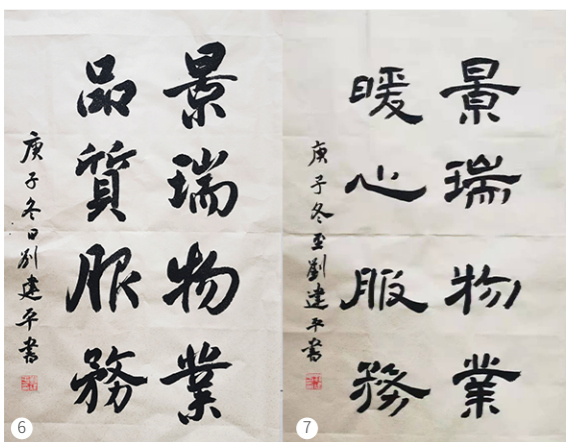 景瑞物業
品質服務
庚子冬日劉建平書
6
景瑞物業
暖心服務
庚子冬至劉建平書
7